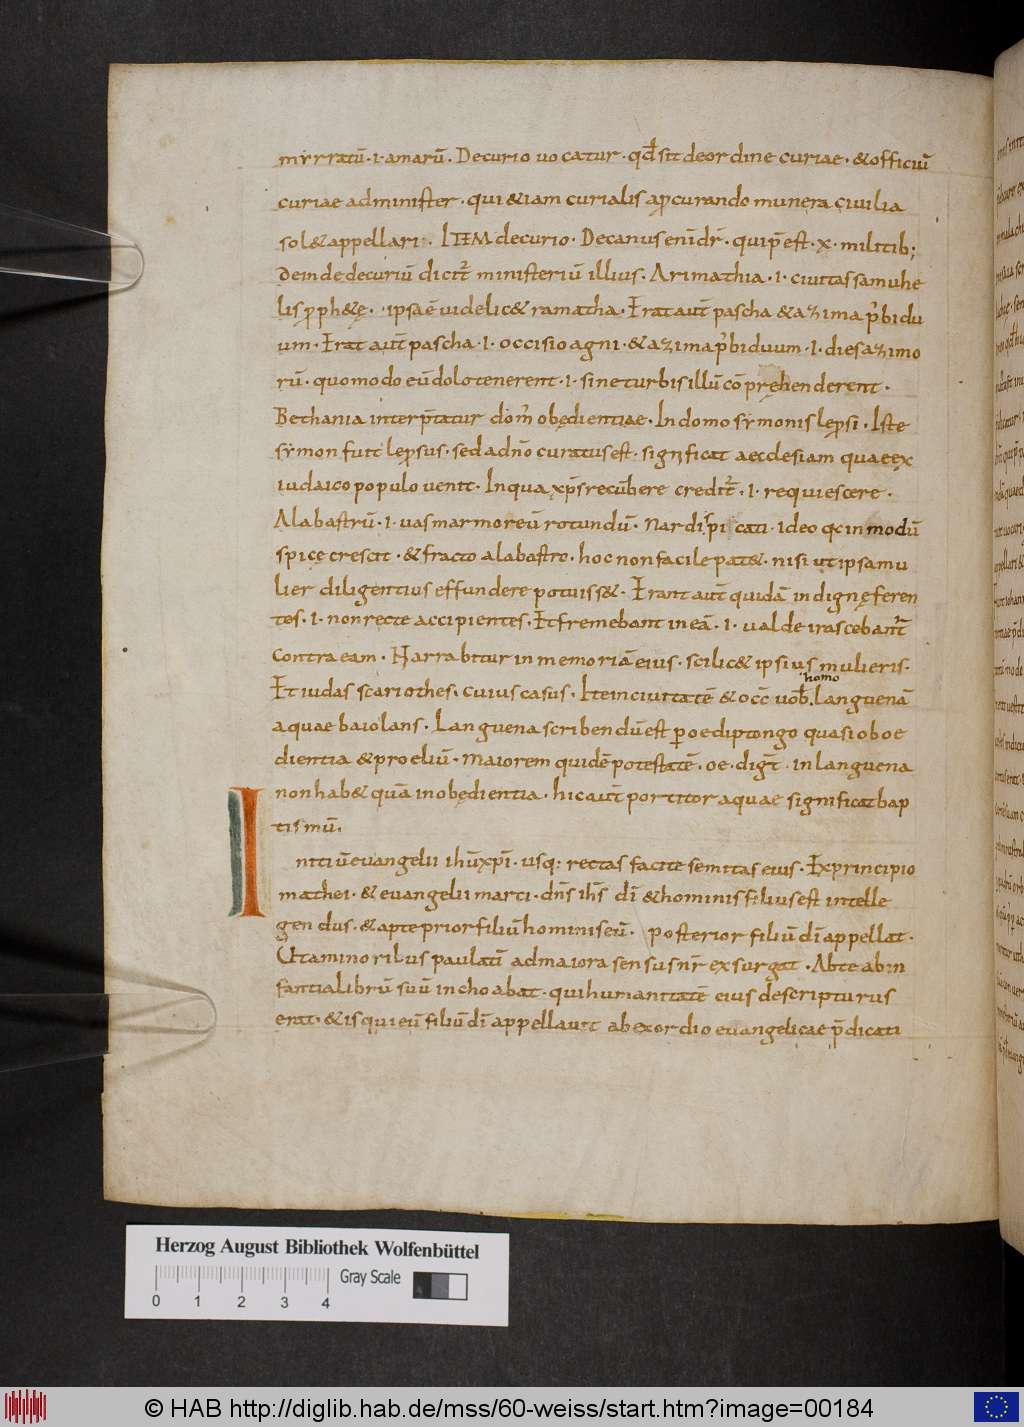 myrratū · i · amarū . Decurio uocatur · qđ sit deordine curiae · &officiū
curiae administer · qui &iam curialis aprcurando munera ciuilia
sol& appellari :. ITEM decurio · Decanus enī dr̄ · quip̄est · x · militib;
deinde decuriū dicit̄ ministeriū illius . Arimathia · i · ciuitas samuhe
lis proph&ę · ipsa ē uidelic& ramatha · Erat aut̄ pascha & azima p'bidu
um · Erat aut̄ pascha · i · occisio agni · & azima p'biduum · i · dies azimo
rū · quomodo eū dolo tenerent · i · sine turbis illū cōpręhenderent ·
Bethania interp̄tatur dom' obędientiae · In domo symonis lepsi · Iste
symon fuit lepsus · sed adn̄o curatus est · significat aecclesiam quae ex
iudaico populo uenit · In qua xp̄s recūbere credit̄ · i · requiescere ·
Alabastrū · i · uas marmoreū rotundū · nardi spicati · ideo qc in modū
spicę crescit · & fracto alabastro · hoc non facile pat& · nisi ut ipsa mu
lier diligentius effundere potuiss& · Erant aut̄ quidā indignę feren
tes · i · non recte accipientes · Et fremebant in eā · i · ualde irascebant̄
contra eam · Narrabitur in memoriā eius · scilic& ipsius mulieris ·
Et iudas scariothes · cuius casus · Ite in ciuitatē & occ̄ uob̄ . homo languenā
aquae baiolans · Languena scribendū est p oe diptongo quasi oboe
dientia & proeliū · maiorem quidē potestatē · oe · digt̄ · in languena
non hab& quā in obędientia · hic aut̄ portitor aquae significat bap
tismū .
Initiū euangelii ihū xp̄i · usq; rectas facite semitas eius · Ex principio
mathei · & euangelii marci · dn̄s ih̄s dī & hominis filius est intelle
gendus · & apte prior filiū hominis eū · posterior filiū dī appellat ·
Ut a minorib us paulatī ad maiora sensus nr̄ exsurgat · Abte ab in
fantia librū suū inchoabat · qui humanitatē eius descripturus
erat · & is qui eū filiū dī appellauit ab exordio euangelicae p̄dicati
Herzog August Bibliothek Wolfenbüttel
Gray Scale
0 1 2 3 4
© HAB http://diglib.hab.de/mss/60-weiss/start.htm?image=00184